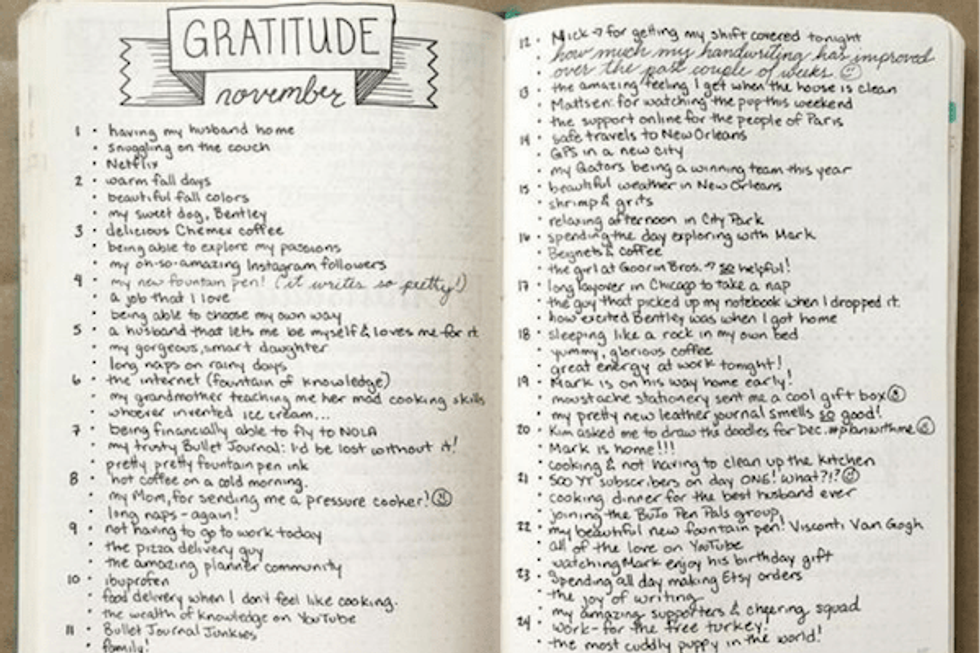 GRATITUDE
november
1 • having my husband home
• snuggling on the couch
• Netflix
2 • warm fall days
• beautiful fall colors
• my sweet dog, Bentley
3 • delicious Chemex coffee
• being able to explore my passions
• my oh-so-amazing Instagram followers
4 • my new fountain pen! (it writes so pretty!)
• a job that I love
• being able to choose my own way
5 • a husband that lets me be myself & loves me for it
• my gorgeous, smart daughter
• long naps on rainy days
6 • the internet (fountain of knowledge)
• my grandmother teaching me her mad cooking skills
• whoever invented ice cream...
7 • being financially able to fly to NOLA
• my trusty Bullet Journal: I'd be lost without it!
• pretty pretty fountain pen ink
8 • hot coffee on a cold morning.
• my Mom, for sending me a pressure cooker! ☺
• long naps - again!
9 • not having to go to work today
• the pizza delivery guy
• the amazing planner community
10 • ibuprofen
• food delivery when I don't feel like cooking.
• the wealth of knowledge on YouTube
11 • Bullet Journal Junkies
• family!
12 • Nick → for getting my shift covered tonight
• how much my handwriting has improved
over the past couple of weeks. ☺
13 • the amazing feeling I get when the house is clean
• Mattsen: for watching the pup this weekend
• the support online for the people of Paris
14 • safe travels to New Orleans
• GPS in a new city
• my Gators being a winning team this year
15 • beautiful weather in New Orleans
• shrimp & grits
• relaxing afternoon in City Park
16 • spending the day exploring with Mark
• Beignets & coffee
• the girl at Goorin Bros. → so helpful!
17 • long layover in Chicago to take a nap
• the guy that picked up my notebook when I dropped it.
• how excited Bentley was when I got home
18 • sleeping like a rock in my own bed
• yummy, glorious coffee
• great energy at work tonight!
19 • Mark is on his way home early!
• moustache stationery sent me a cool gift box ☺
• my pretty new leather journal smells so good!
20 • Kim asked me to draw the doodles for Dec. #planwithme ☺
• Mark is home!!!
• cooking & not having to clean up the kitchen
21 • 500 YT subscribers on day ONE! what?!? ☺
• cooking dinner for the best husband ever
• joining the BuJo Pen Pals group
22 • my beautiful new fountain pen! Visconti Van Gogh
• all of the love on YouTube
• watching Mark enjoy his birthday gift
23 • Spending all day making Etsy orders
• the joy of writing
• my amazing supporters & cheering squad
24 • work - for the free turkey.
• the most cuddly puppy in the world!